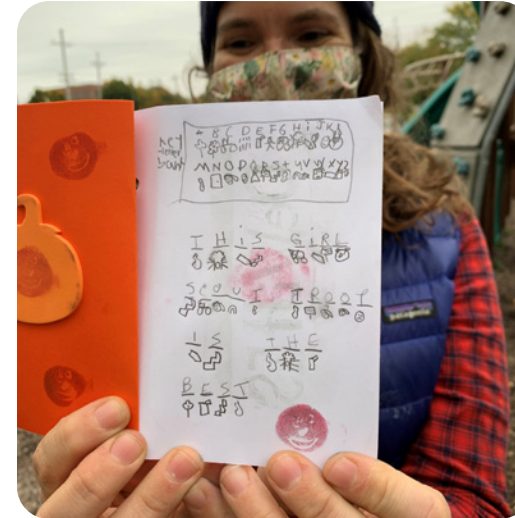 KEY
A B C D E F G H i J K L
M N O P Q R S t U V W X Y Z
T H i S G i R L
S C O U T T R O O T
I S T H E
B E S T
patagonia